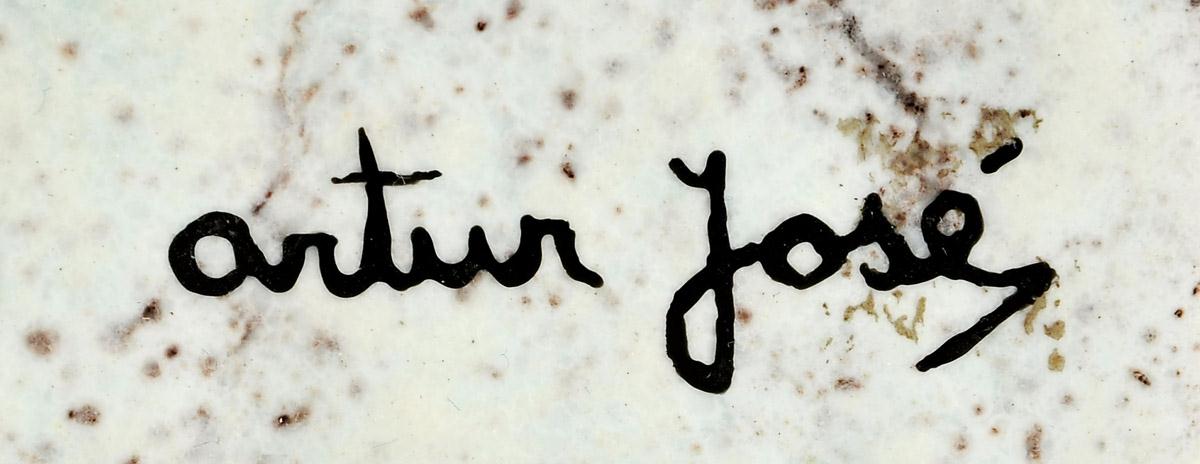 artur José